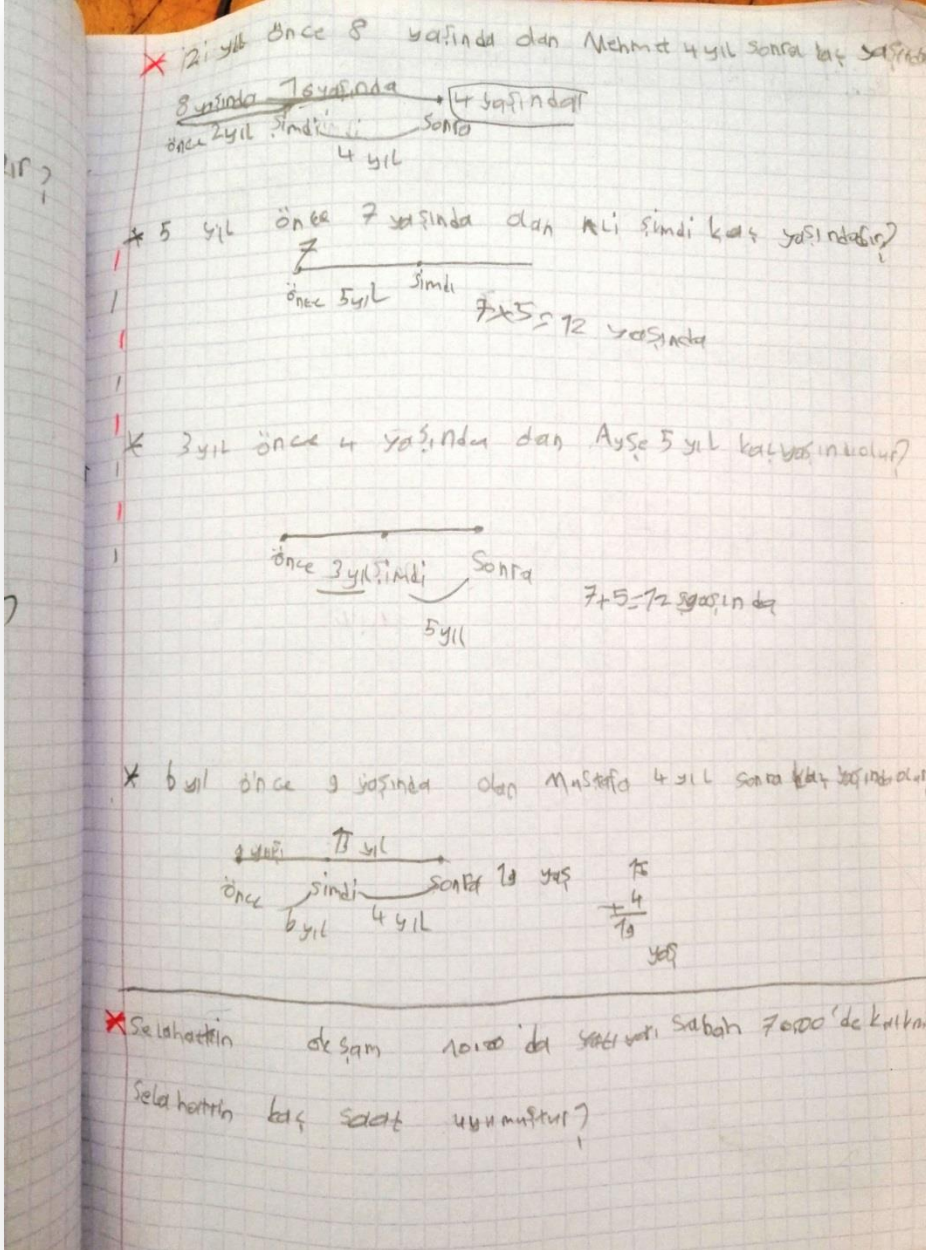 2 yıl önce 8 yaşında olan Mehmet 4 yıl sonra kaç
8 yaşında 10 yaşında 14 yaşındadır
önce 2yıl Şimdi Sonra
4 yıl
ır?
* 5 yıl önce 7 yaşında olan Ali şimdi kaç yaşındadır?
7
önce 5yıl Şimdi
7+5=12 yaşında
* 3 yıl önce 4 yaşında olan Ayşe 5 yıl kaç yaşında olur?
önce 3 yıl Şimdi Sonra
5 yıl
7+5=12 yaşında
* 6 yıl önce 9 yaşında olan Mustafa 4 yıl sonra kaç yaşında olur
9 yaşı 15 yıl
önce şimdi sonra 19 yaş
6 yıl 4 yıl
15
+ 4
19
yaş
* Selahattin akşam 10:00'da yatıyor. Sabah 70:00'de
Selahattin kaç saat uyumuştur?